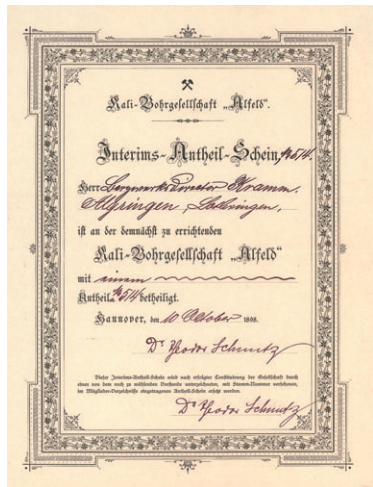 Kali-Bohrgesellschaft „Alfeld“.
Interims-Antheil-Schein, № 514.
Herr Bergwerks Director Kramm,
Algringen, Lothringen,
ist an der demnächst zu errichtenden
Kali-Bohrgesellschaft „Alfeld“
mit einem
Antheil № 514 betheiligt.
Hannover, den 10 October 1898.
Dr Theodor Schmutz
Dieser Interims-Antheil-Schein wird nach erfolgter Constituirung der Gesellschaft durch
einen von dem noch zu wählenden Vorstande unterzeichneten, mit Stamm-Nummer versehenen,
im Mitglieder-Verzeichnisse eingetragenen Antheil-Schein ersetzt werden.
Dr Theodor Schmutz